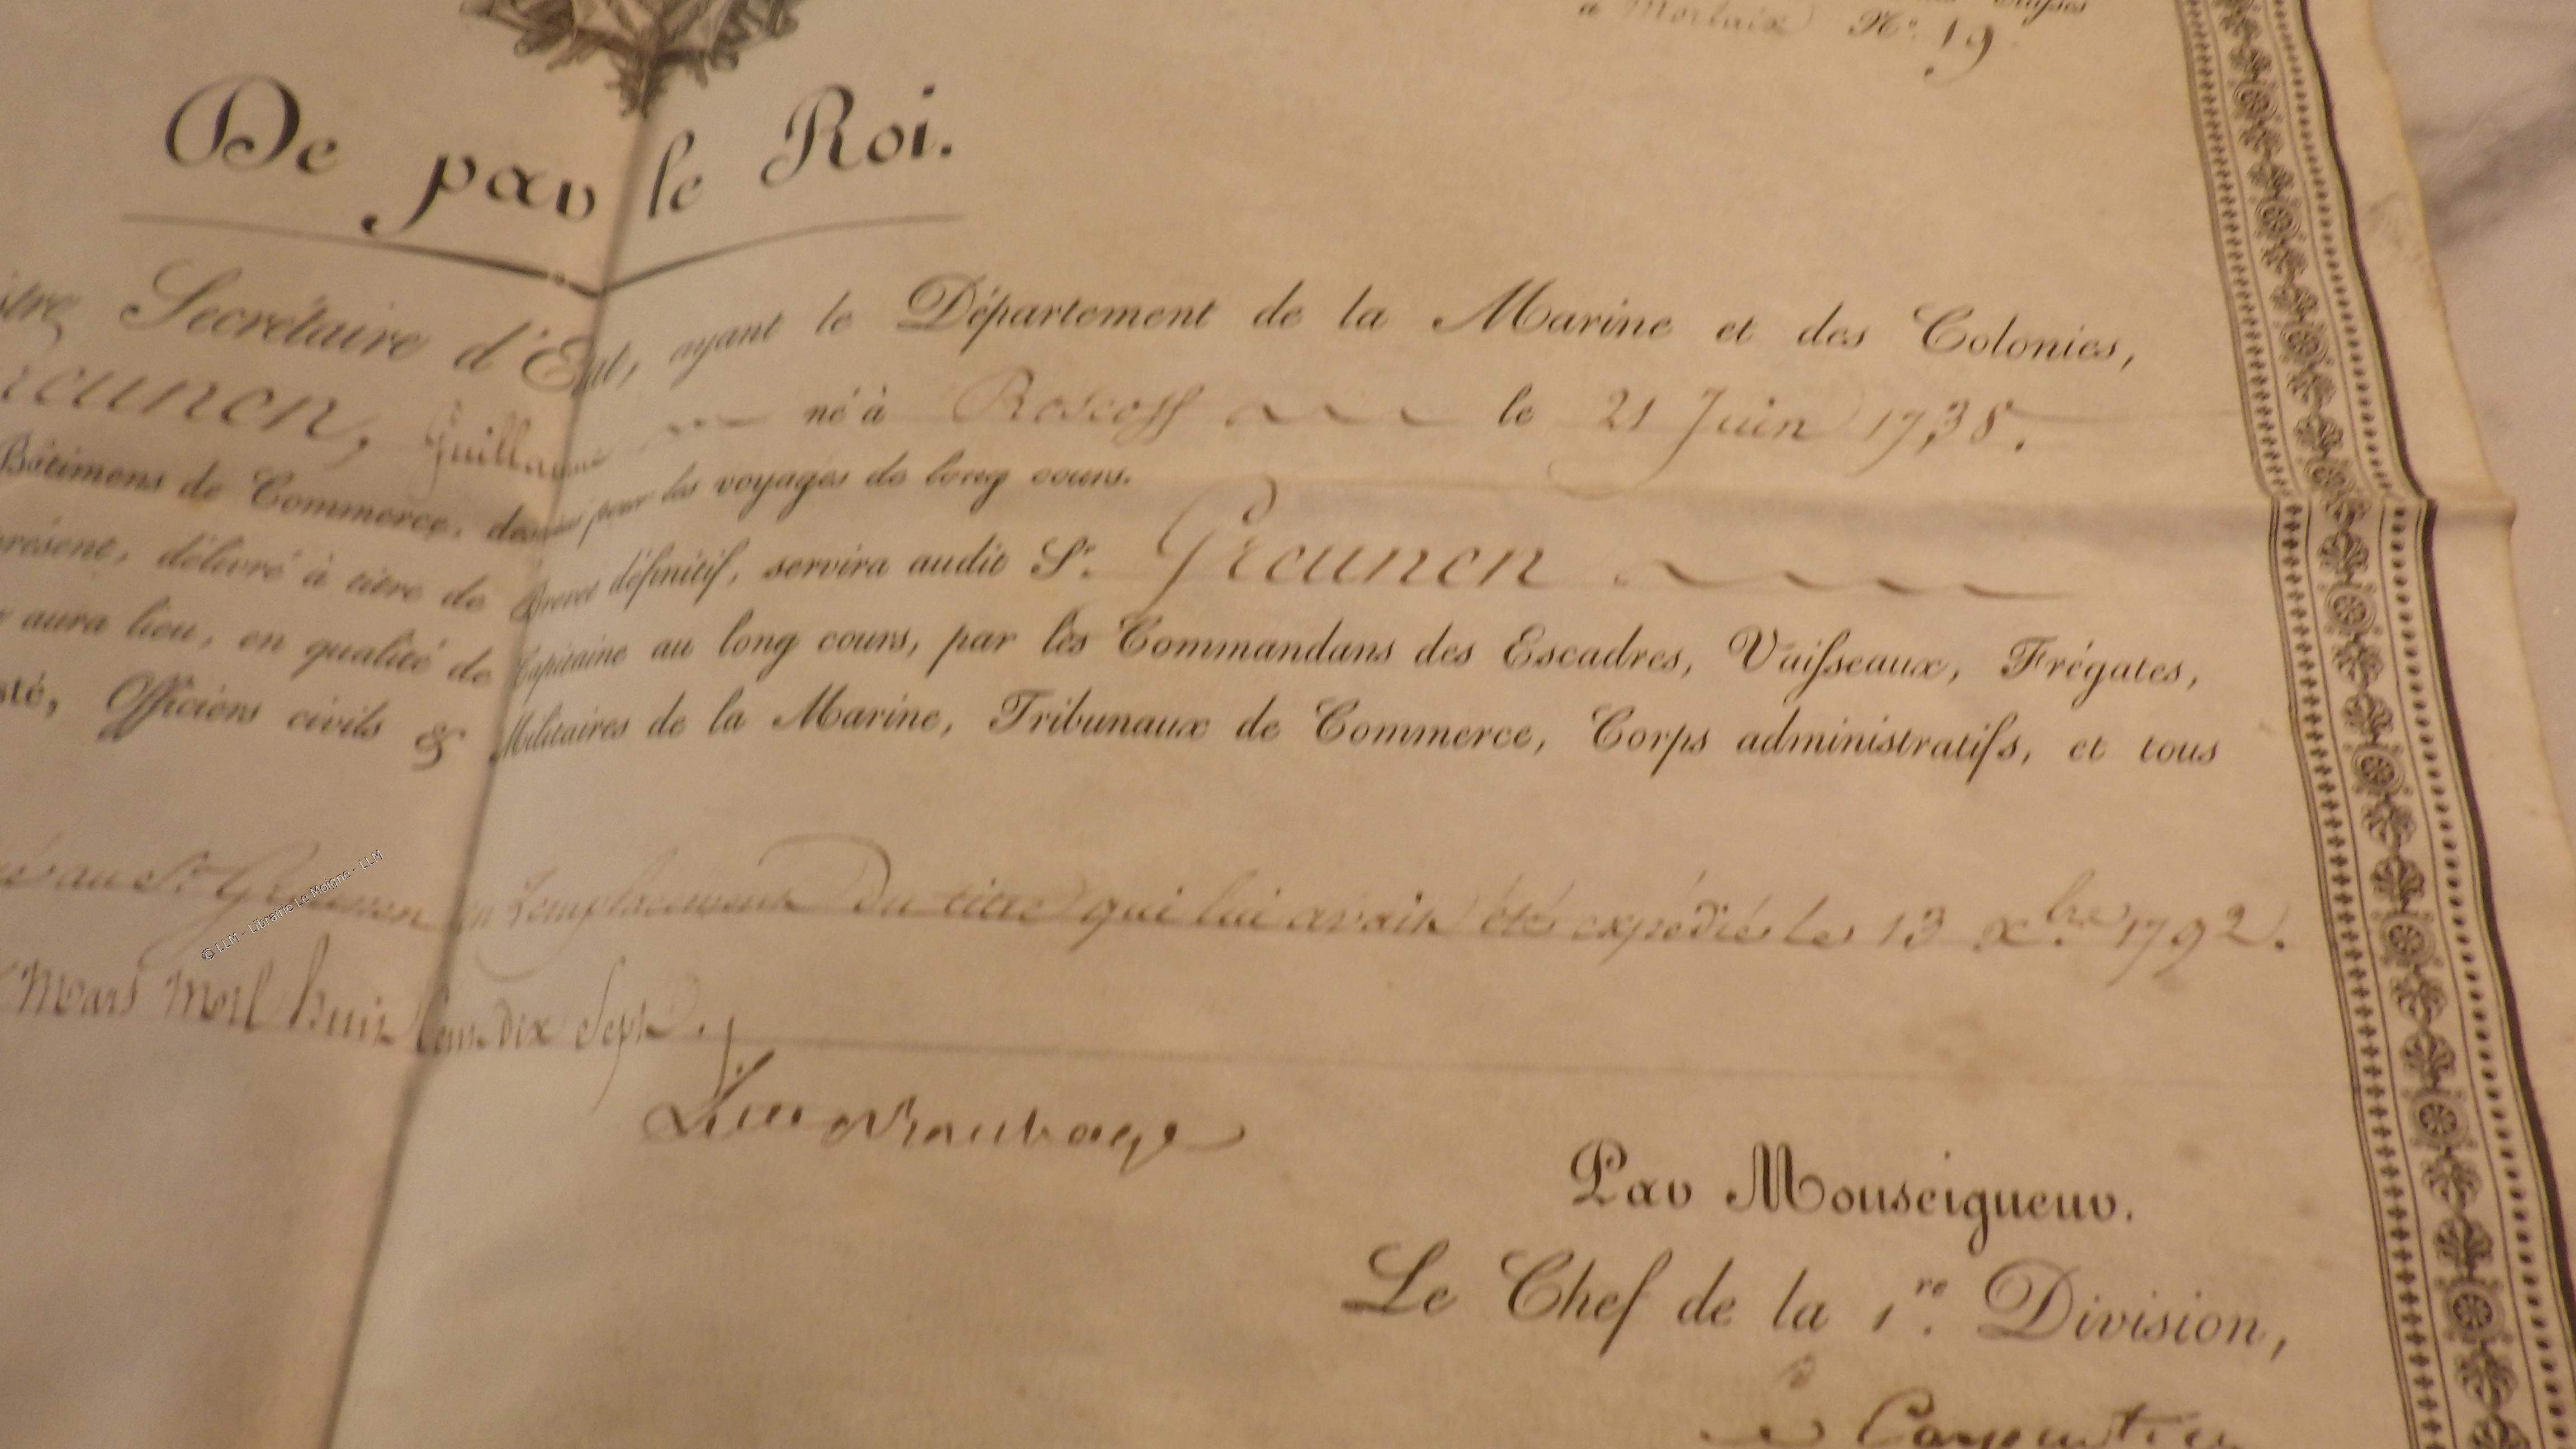 à Morlaix N.° 19
De par le Roi.
Secrétaire d'Etat, ayant le Département de la Marine et des Colonies,
Guillaume né à Roscoff le 21 Juin 1738.
Bâtimens de Commerce, destinés pour les voyages de long cours.
présent, délivré à titre de Brevet définitif, servira audit S.r Greunen
aura lieu, en qualité de Capitaine au long cours, par les Commandans des Escadres, Vaisseaux, Frégates,
Officiers civils & Militaires de la Marine, Tribunaux de Commerce, Corps administratifs, et tous
au S.r Greunen en remplacement du titre qui lui avait été expédié le 13 x.bre 1792.
Mars Mil huit Cent dix Sept.
Par Monseigneur.
Le Chef de la 1.re Division,
© LLM - Librairie Le Moigne - LLM